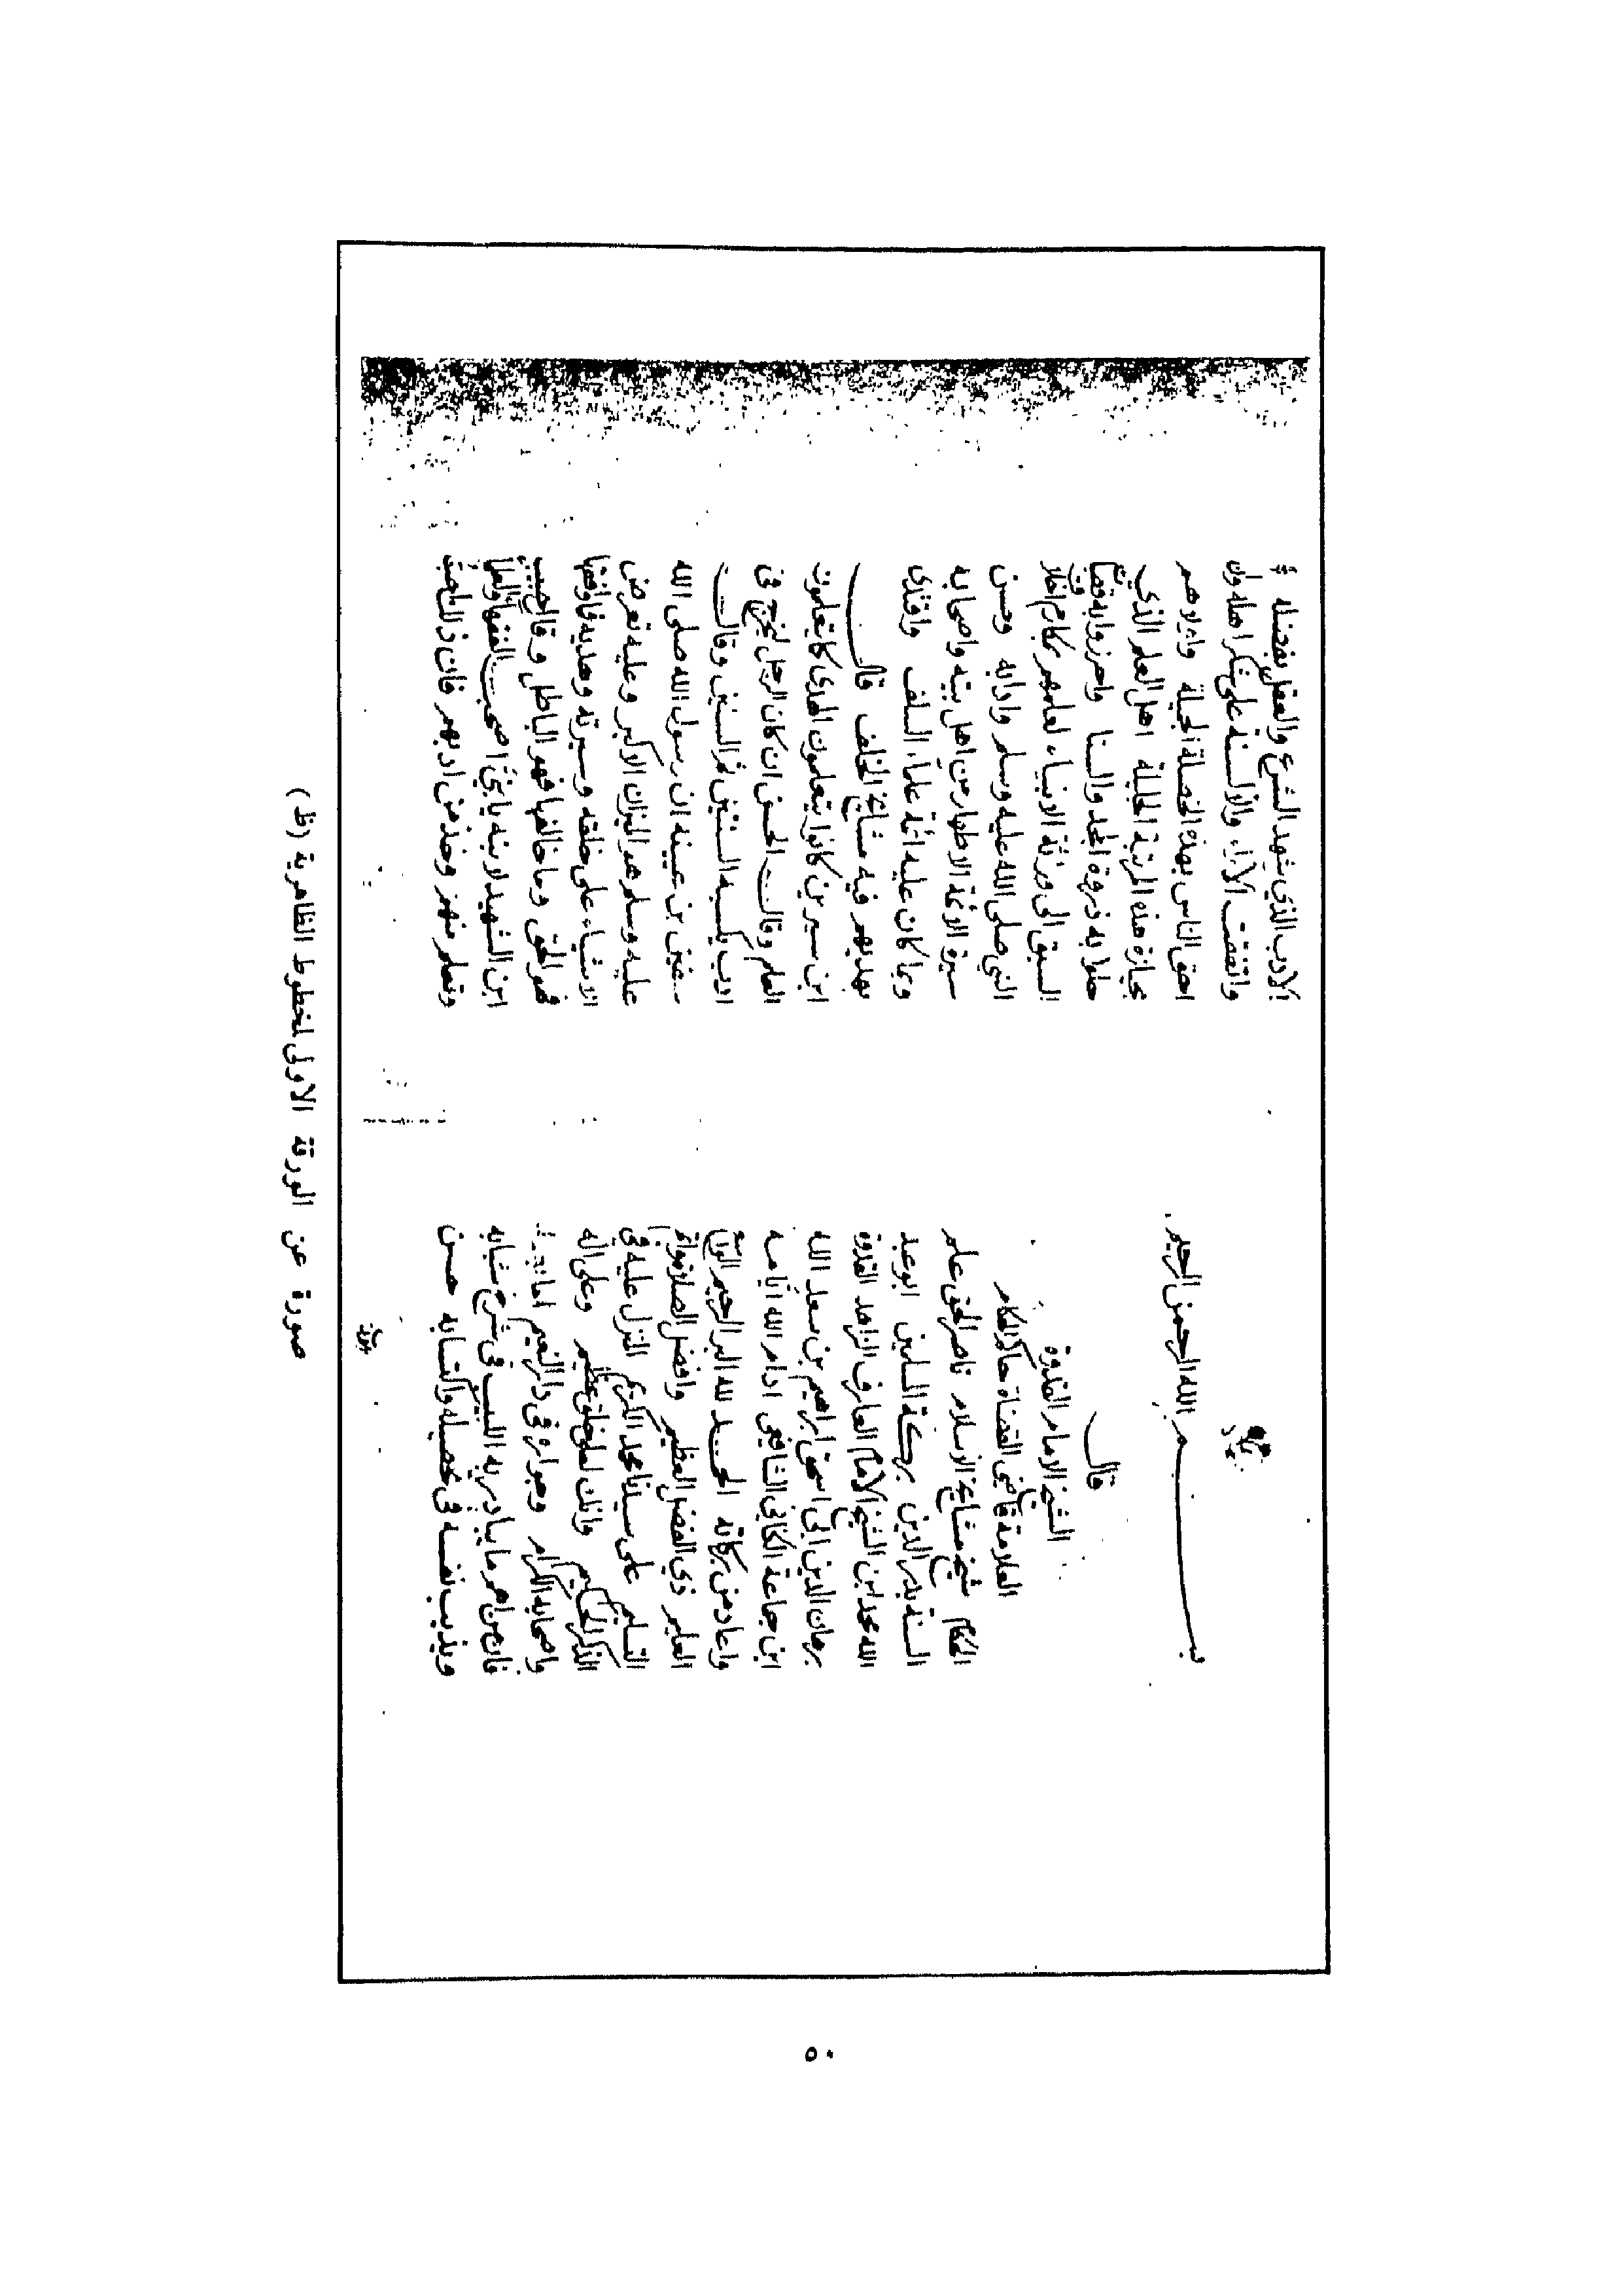 بسم الله الرحمن الرحيم
قال
الشيخ الامام القدوة
العلامة قاضي القضاة حاكم الحكام
الحكام شيخ مشايخ الاسلام ناصر الحق علم
السنة بدر الدين بركة المسلمين ابو عبد
الله محمد ابن الشيخ الامام العارف الزاهد القدوة
برهان الدين ابى اسحق ابراهيم بن سعد الله
ابن جماعة الكناني الشافعي ادام الله ايامه
واعاد من بركاته الحمد لله البر الرحيم الواسع
العليم ذي الفضل العظيم وافضل الصلاة واتم
التسليم على سيدنا محمد الكريم المنزل عليه في
الذكر الحكيم وانك لعلى خلق عظيم وعلى اله
واصحابه الكرام وجواره في دار النعيم اما بعد
فان من اهم ما يبادر به اللبيب في شرخ شبابه
ويذيب نفسه في تحصيله واكتسابه حسن
الادب الذي شهد الشرع والعقل بفضله
واتفقت الآراء والألسنة على شكر اهله وان
احق الناس بهذه الخصلة الجميلة واولاهم
بحيازة هذه المرتبة الجليلة اهل العلم الذي
حلوا به ذروة المجد والسنا واحرزوا به قصبات
السبق الى وراثة الانبياء لعلمهم بمكارم اخلاق
النبي صلى الله عليه وسلم وادابه وحسن
سيرة الائمة الاطهار من اهل بيته واصحابه
وبما كان عليه ائمة علماء السلف واقتدى
بهديهم فيه مشايخ الخلف قال
ابن سيرين كانوا يتعلمون الهدى كما يتعلمون
العلم وقال الحسن ان كان الرجل ليخرج في
ادب يكسبه السنتين ثم السنتين وقال
سفين بن عيينه ان رسول الله صلى الله
عليه وسلم هو الميزان الاكبر وعليه تعرض
الاشياء على خلقه وسيرته وهديه فما وافقها
فهو الحق وما خالفها فهو الباطل وقال حبيب
ابن الشهيد لابنه يا بني اصحب الفقهاء والعلماء
وتعلم منهم وخذ من ادبهم فان ذلك احب
صورة عن الورقة الاولى لمخطوط الظاهرية (ظ)
٥٠